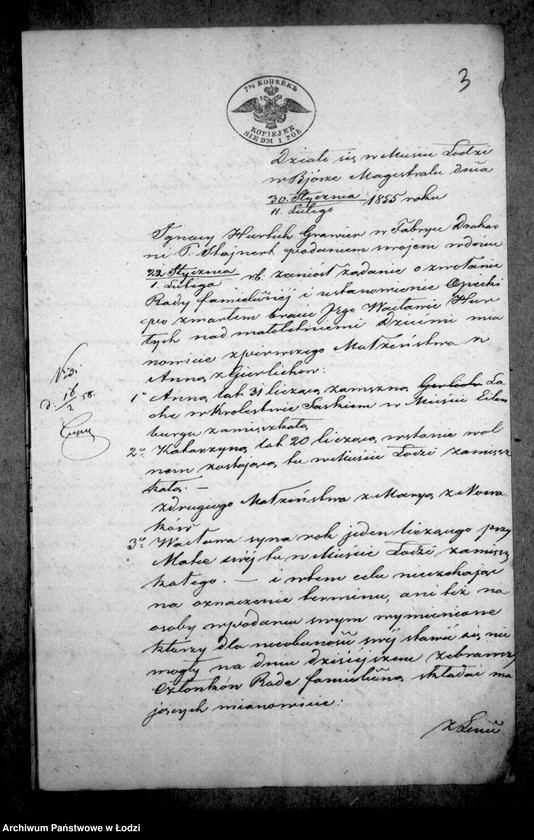 3
7½ КОПѢЕКЪ
KOPIEJEK
SIEDM I PÓŁ
Działo się w Mieście Łodzi
w Biórze Magistratu dnia
30 Stycznia / 11 Lutego 1855 roku
Ignacy Hurtich Grawier w Fabryce Drukar
ni P. Stajnert podaniem swojem w dniu
22 Stycznia / 1. Lutego rb. zaniósł żądanie o zwołanie
Rady familijnéj i ustanowienie Opieki
po zmarłem bracie Jego Wacławie Hur
tych nad małoletniemi Dziećmi mia
nowicie z pierwszego Małżeństwa z
Anną z Gierlichów:
1º Anną lat 31 liczącą zamężną La
che w Królestwie Saskiem w Mieście Eilen
burgu zamieszkałą
2º Katarzyną lat 20 liczącą w stanie wol
nem zostającą tu w Mieście Łodzi zamiesz
kałą. —
z drugiego Małżeństwa z Maryą z Nowa
ków
3º Wacława syna rok jeden liczącego przy
Matce swéj tu w Mieście Łodzi zamiesz
kałego. — i w tem celu nieczekając
na oznaczenie terminu, ani też na
osoby w podaniu swym wymienione
którzy dla nieobecności swéj stawić się nie
mogły na dniu dzisiejszem zebrawszy
Członków Radę familijną składać ma
jących mianowicie:
z Linii
Nº 3.
d. 16/2 58.
Archiwum Państwowe w Łodzi